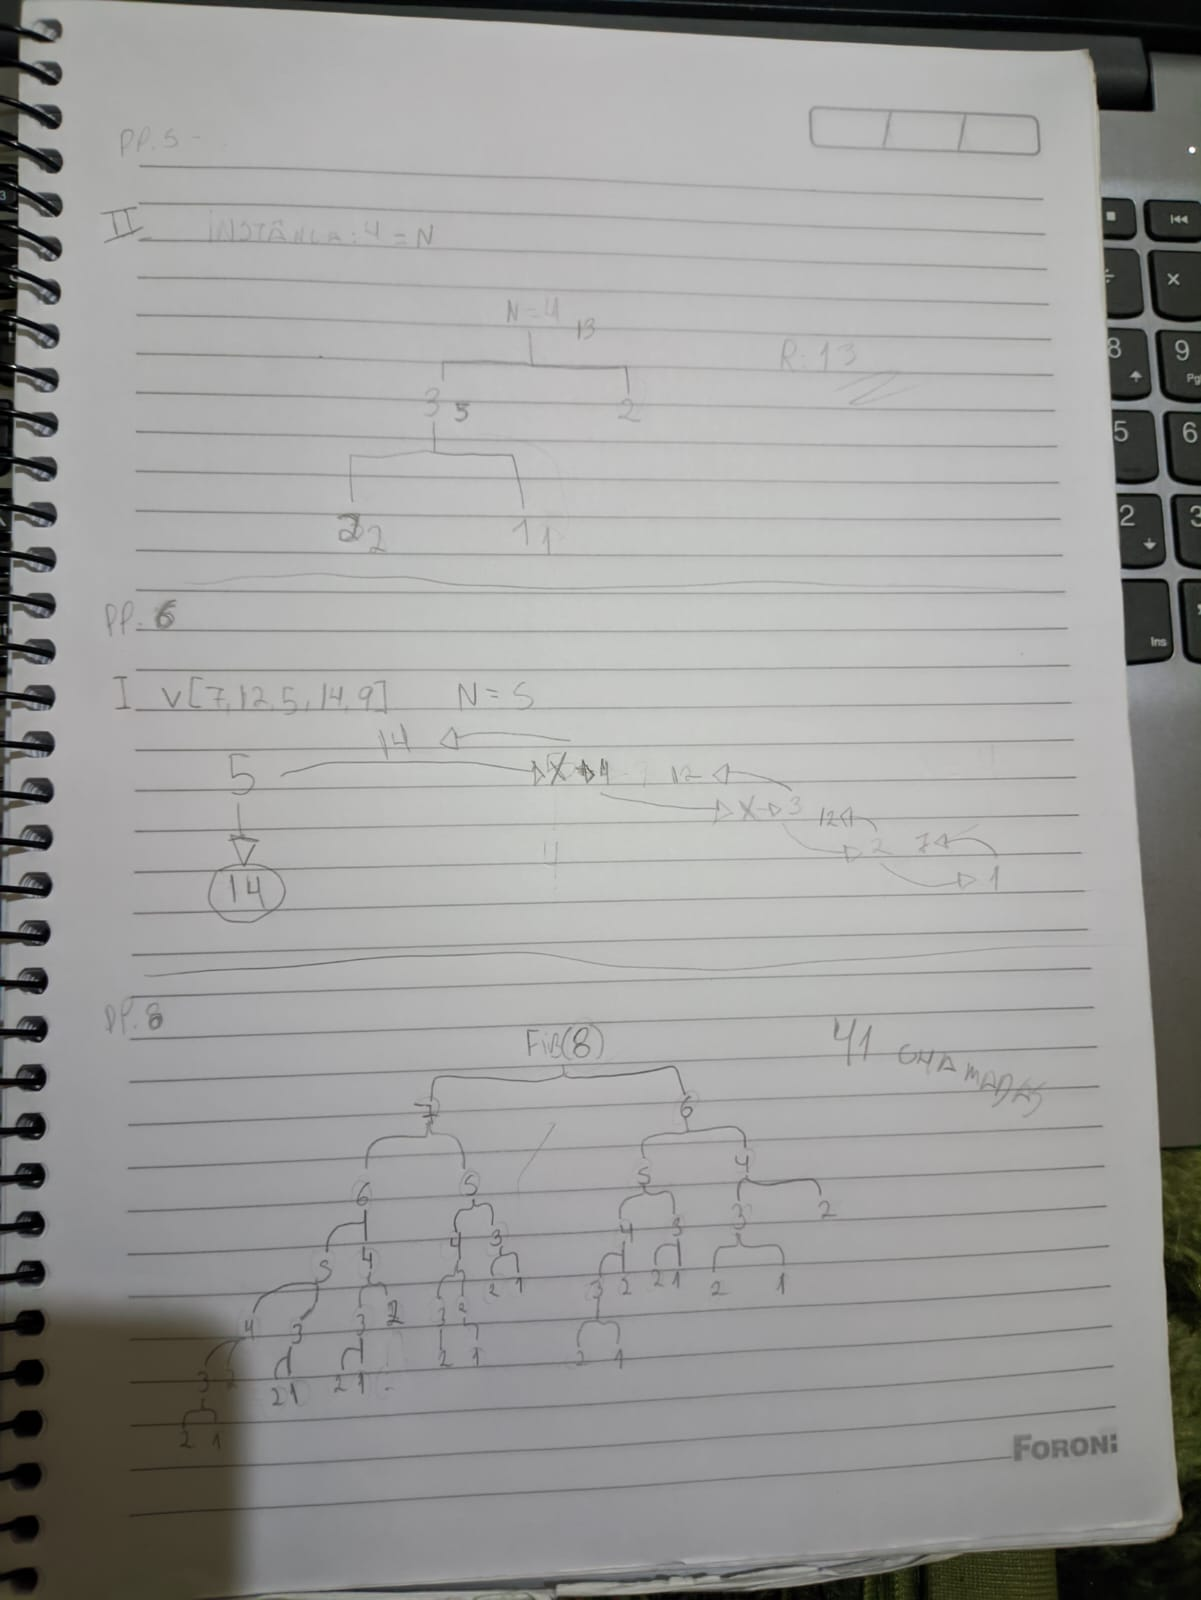 PP. 5 -
II INSTÂNCIA: 4 = N
N = 4 13
R: 13
3 5 2
2 2 1 1
PP. 6
I V[7,12,5,14,9] N = 5
14
5 X 4 12
X 3 12
4 2 7
14 1
PP. 8
Fib(8) 41 CHAMADAS
7 6
6 5 5 4
5 4 4 3 4 3 3 2
4 3 3 2 3 2 2 1 3 2 2 1 2 1
3 2 2 1 2 1 2 1 2 1
2 1
FORONI
8 9 Pg
5 6
2 3
Ins